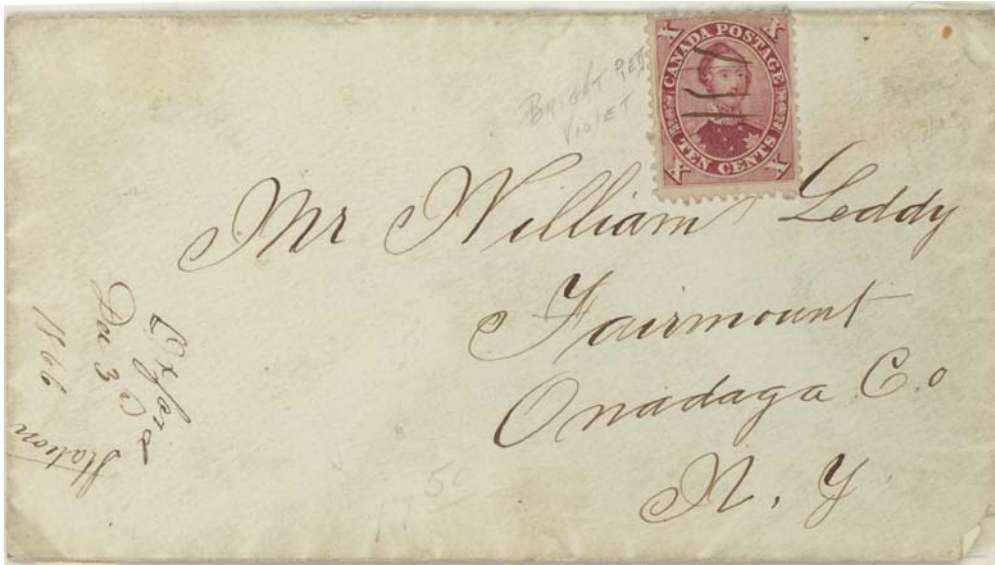 X CANADA POSTAGE X
X TEN CENTS X
BRIGHT RED
VIOLET
Mr William Leddy
Fairmount
Onadaga Co
N. Y
Oxford
Station
Dec 3
1866
50